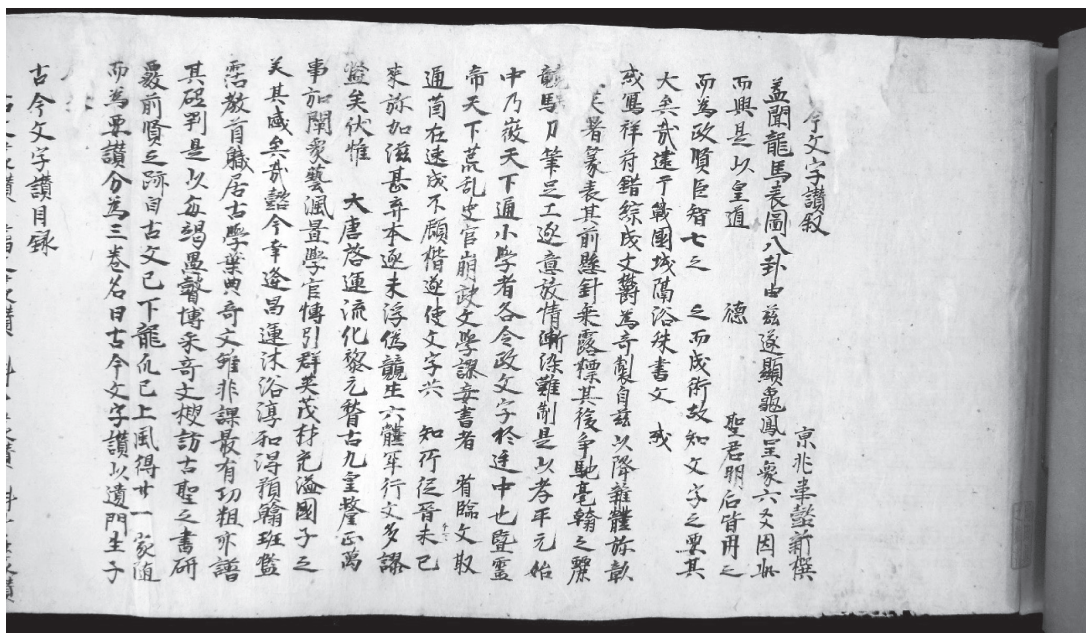 今文字讃叙
京兆韋 新撰
蓋聞龍馬表圖八卦由茲遂顯龜鳳呈象六爻因此
而興是以皇道 德 聖君明后皆用之
而為政賢臣智士之 之而成術故知文字之要其
大矣哉逮于戰國城隔俗殊書文 或
或寫祥符錯綜成文欝為奇製自茲以降雜體弥彰
著篆表其前懸針垂露標其後争馳毫翰之
馬刀筆之工逐意放情漸染難制是以孝平元始
中乃徴天下通小學者各令改文字於廷中也暨靈
帝天下荒乱史官崩缺文學謬妄書者 肖臨文取
通茍在速成不顧偕逐使文字 知行従晋末已
来弥加滋甚弃本逐末浮偽競生六體軍行文多謬
矣伏惟 大唐啓運流化黎元暜古九皇 正萬
事加闡衆藝渢 學官愽引群英茂材充溢國子之
美其盛矣哉 今幸逢昌運沐浴淳和得預翰班
霑教首職居古學業典奇文雖非課最有功粗亦譜
其 是以每竭愚瞽博采奇文捜訪古聖之書研
覈前賢之跡自古文已下龍爪已上凮得廿一家随
而為要讃分為三卷名曰古今文字讃以遺門生子
古今文字讃目録